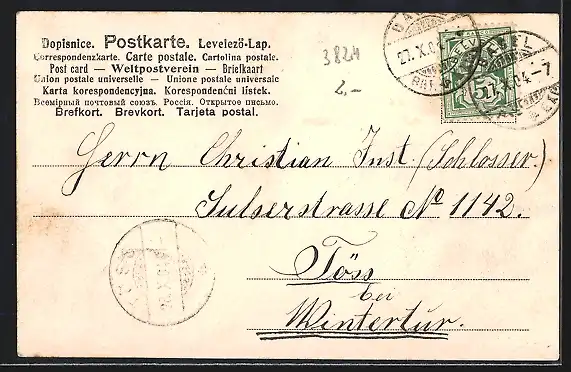 Dopisnice. Postkarte. Levelező-Lap.
Correspondenzkarte. Carte postale. Cartolina postale.
Post card — Weltpostverein — Briefkaart
Union postale universelle. — Unione postale universale
Karta korespondencyjna. Korespondenční listek.
Всемірный почтовый союзъ. Россія. Открытое письмо.
Brefkort. Brevkort. Tarjeta postal.
3824
2,-
Herrn Christian Just. (Schlosser.)
Sulserstrasse No 1142.
Töss
bei
Wintertur.